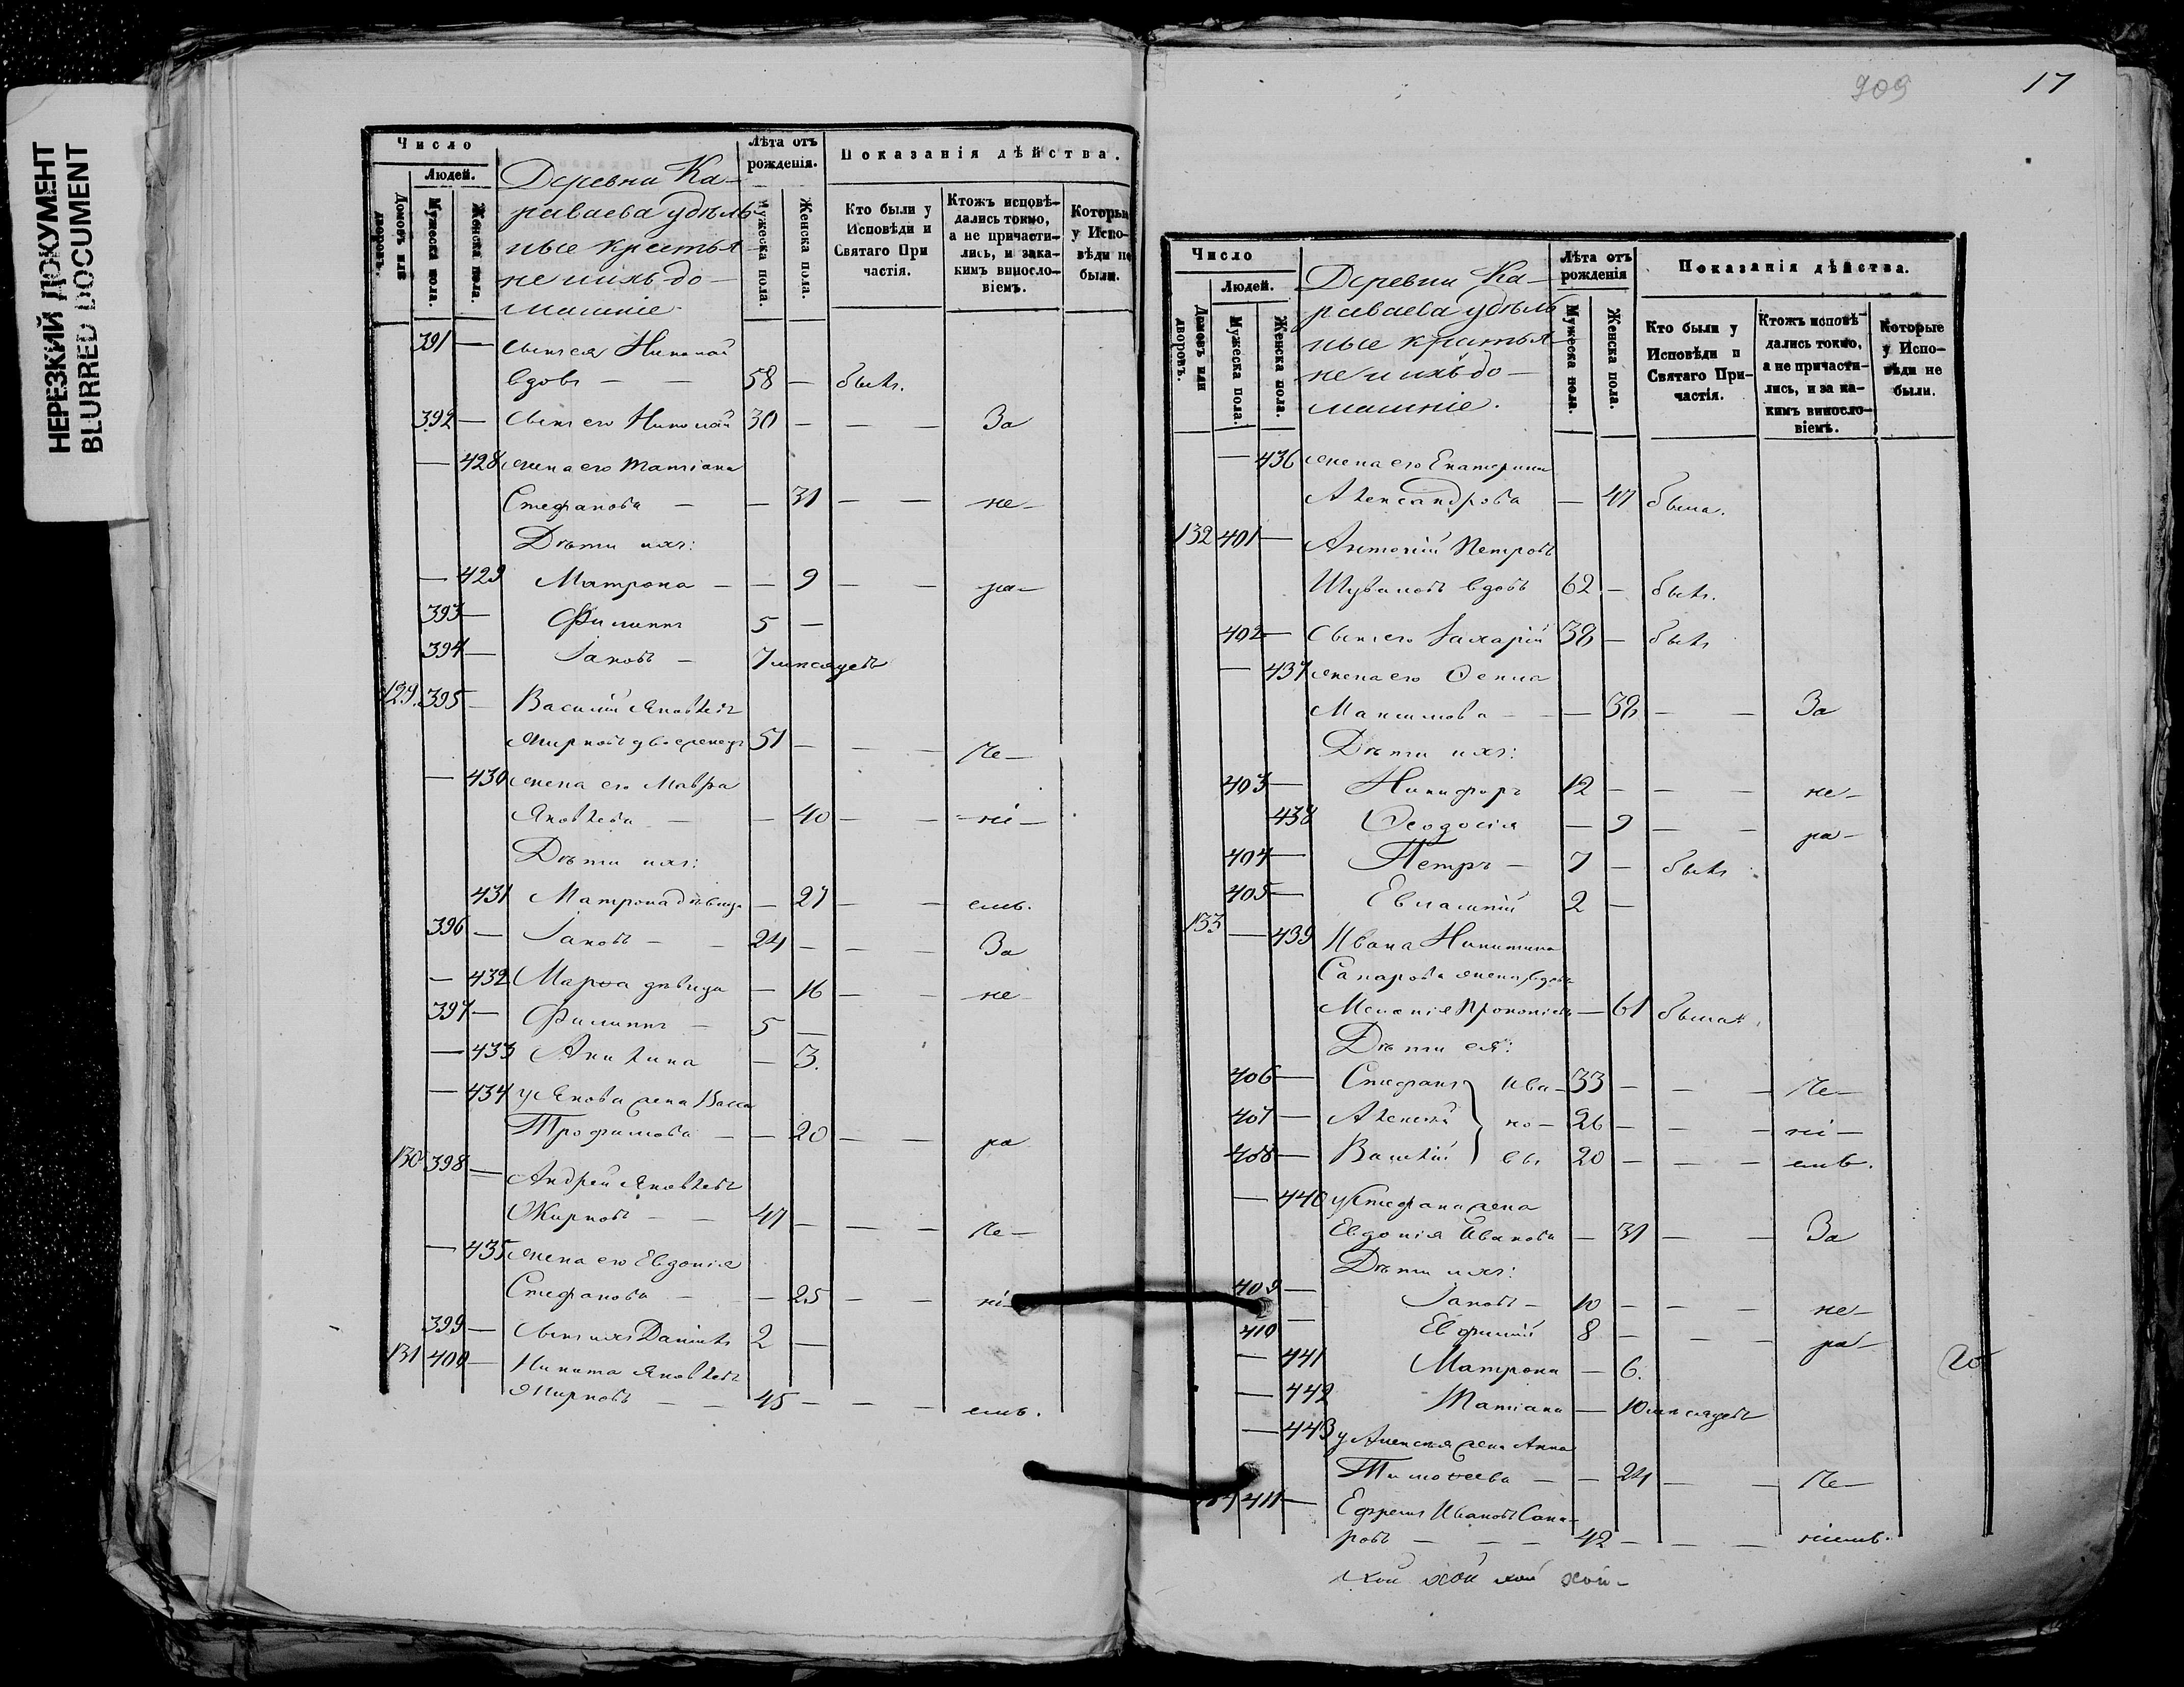 НЕРЕЗКИЙ ДОКУМЕНТ
BLURRED DOCUMENT
Число
Людей.
Домовъ или дворовъ.
Мужеска пола.
Женска пола.
Деревни Ка-
раваева удѣль-
ные крестья-
не и ихъ до-
машніе
Лѣта отъ рожденія.
Мужеска пола.
Женска пола.
Показанія дѣйства.
Кто были у Исповѣди и Святаго При частія.
Ктожъ исповѣ- дались токмо, а не причасти- лись, и зака- кимъ винoсло- віемъ.
Которые у Испо- вѣди не были.
391 — сынъ ея Николай
вдовъ — — 58 — былъ.
392 — Сынъ его Николай 30 — — — За
— 428 жена его Татіана
Стефанова — — 31 — — не-
Дѣти ихъ:
— 429 Матрона — — 9 — — ра-
393 — Филиппъ 5 —
394 — Іаковъ — 7 мѣсяцевъ
129. 395 — Василій Яковлевъ
Жирновъ двоеженецъ 51 — — — че-
— 430 жена его Мавра
Яковлева — — 40 — — ні-
Дѣти ихъ:
431 Матрона дѣвица — 27 — — емъ.
396 — Іаковъ — — 24 — — — За
— 432 Марѳа дѣвица — 16 — — не-
397 — Филиппъ — 5 —
— 433 Акилина — 3.
— 434 у Якова жена Васса
Трофимова — — 20 — — ра
130 398 — Андрей Яковлевъ
Жирновъ — — 47 — — — че-
— 435 жена его Евдокія
Стефанова — — 25 — — ні-
399 — сынъ ихъ Даніилъ 2 —
131 400 — Никита Яковлевъ
Жирновъ — — 45 — — — емъ.
909
17
Число
Людей.
Домовъ или дворовъ.
Мужеска пола.
Женска пола.
Деревни Ка-
раваева удѣль-
ные крестья-
не и ихъ до-
машніе.
Лѣта отъ рожденія
Мужеска пола.
Женска пола.
Показанія дѣйства.
Кто были у Исповѣди и Святаго При- частія.
Ктожъ исповѣ- дались токмо, а не причасти- лись, и за ка- кимъ винoсло- віемъ.
Которые у Испо- вѣди не были.
— 436 жена его Екатерина
Александрова — 47 была.
132 401 — Антоній Петровъ
Шуваловъ вдовъ 62 — былъ.
402 — Сынъ его Захарій 38 — былъ
— 437 жена его Ѳекла
Максимова — — 38 — — За
Дѣти ихъ:
403 — Никифоръ 12 — — — не-
438 Ѳеодосія — 9 — — ра-
404 — Петръ — 7 — былъ
405 — Евлампій 2 —
133 — 439 Ивана Никитина
Сахарова жена вдова
Меланія Прокопіева — 61 была.
Дѣти ея:
406 — Стефанъ Ива- 33 — — — че-
407 — Алексѣй но- 26 — — — ні-
408 — Василій вы 20 — — — емъ.
— 440 у Стефана жена
Евдокія Иванова — 31 — — За
Дѣти ихъ:
409 — Іаковъ — 10 — — — не-
410 — Евфимій 8 — — — ра-
— 441 Матрона — 6.
— 442 Татіана — 10 мѣсяцевъ
— 443 у Алексѣя жена Анна
Тимоѳеева — — 24 — — че-
134 411 — Ефремъ Ивановъ Саха-
ровъ — — — 42 — — — ніемъ.